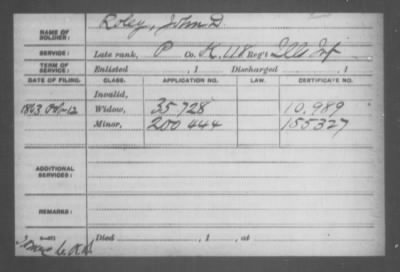 NAME OF SOLDIER: Roley, John D.
SERVICE: Late rank, P Co. K, 118 Reg't Ills Inf
TERM OF SERVICE: Enlisted , 1 Discharged , 1
DATE OF FILING. CLASS. APPLICATION NO. LAW. CERTIFICATE NO.
Invalid,
1863 Widow, 35 728 10.989
Minor, 200 444 155327
ADDITIONAL SERVICES:
REMARKS:
Died , 1 , at